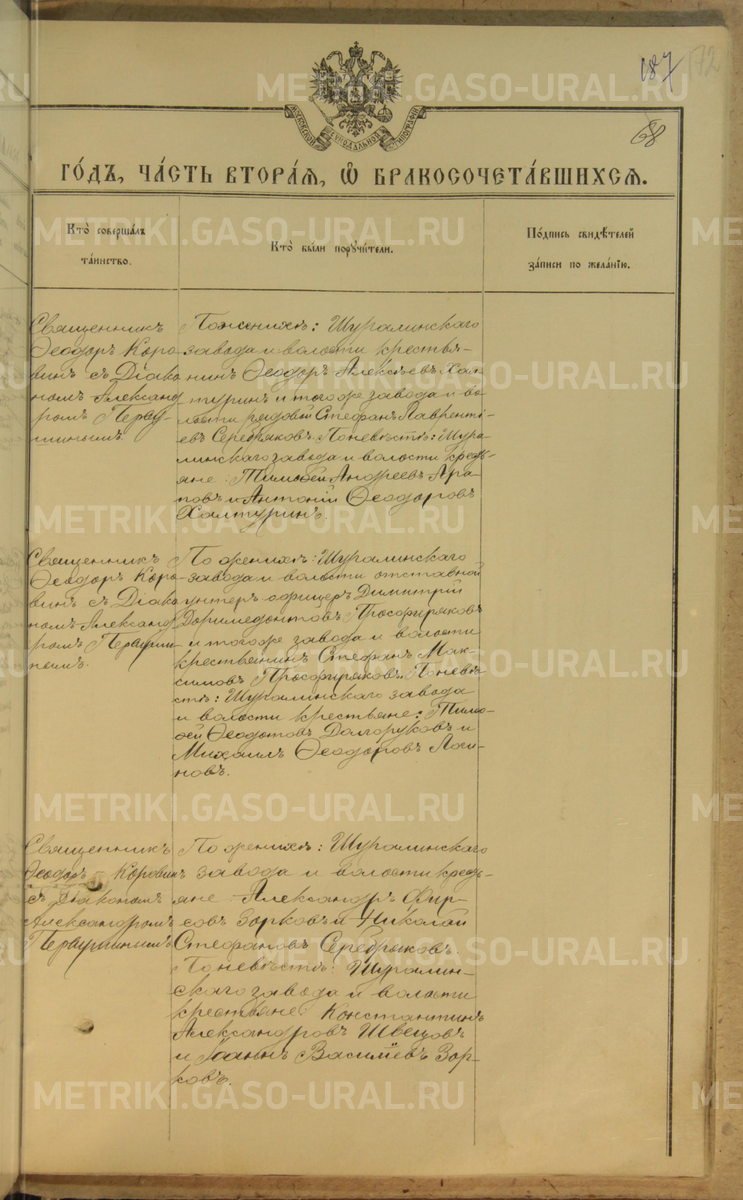 187
72
68
МОСКОВСКОЙ СѴНОДАЛЬНОЙ ТИПОГРАФІИ
ГО́ДЪ, ЧА́СТЬ ВТОРА́Я, Ѽ БРАКОСОЧЕТА́ВШИХСЯ.
Кто̀ соверша́лъ
та́инство.
Кто̀ бы́ли поручи́тели.
По́дпись свидѣ́телей
за́писи по жела́нїю.
Священникъ
Ѳеодоръ Коро-
винъ съ Діако
номъ Александ
ромъ Перву-
шинымъ.
По женихѣ: Шуралинскаго
завода и волости крестья-
нинъ Ѳеодоръ Алексѣевъ Хал
туринъ и того же завода и во
лости рядовой Стефанъ Лавренті-
евъ Серебряковъ. По невѣстѣ: Шура
линскаго завода и волости кресть-
яне: Тимоѳей Андреевъ Ара-
повъ и Антоній Ѳеодоровъ
Халтуринъ.
Священникъ
Ѳеодоръ Коро-
винъ съ Діако
номъ Александ
ромъ Первуши
нымъ.
По женихѣ: Шуралинскаго
завода и волости отставной
унтеръ офицеръ Димитрій
Доримедонтовъ Просфиряковъ
и того же завода и волости
крестьянинъ Стефанъ Мак-
симовъ Просфиряковъ. По невѣ
стѣ: Шуралинскаго завода
и волости крестьяне: Тимо-
ѳей Ѳеодотовъ Долгоруковъ и
Михаилъ Ѳеодоровъ Логи-
новъ.
Священникъ
Ѳеодоръ Коровинъ
съ Діакономъ
Александромъ
Первушинымъ
По женихѣ: Шуралинскаго
завода и волости кресть-
яне Александръ Фир-
совъ Зорковъ и Николай
Стефановъ Серебряковъ.
По невѣстѣ: Шуралин-
скаго завода и волости
крестьяне Константинъ
Александровъ Швецовъ
и Іоаннъ Василіевъ Зор-
ковъ.
METRIKI.GASO-URAL.RU
METRIKI.GASO-URAL.RU
METRIKI.GASO-URAL.RU
METRIKI.GASO-URAL.RU
METRIKI.GASO-URAL.RU
METRIKI.GASO-URAL.RU
METRIKI.GASO-URAL.RU
METRIKI.GASO-URAL.RU